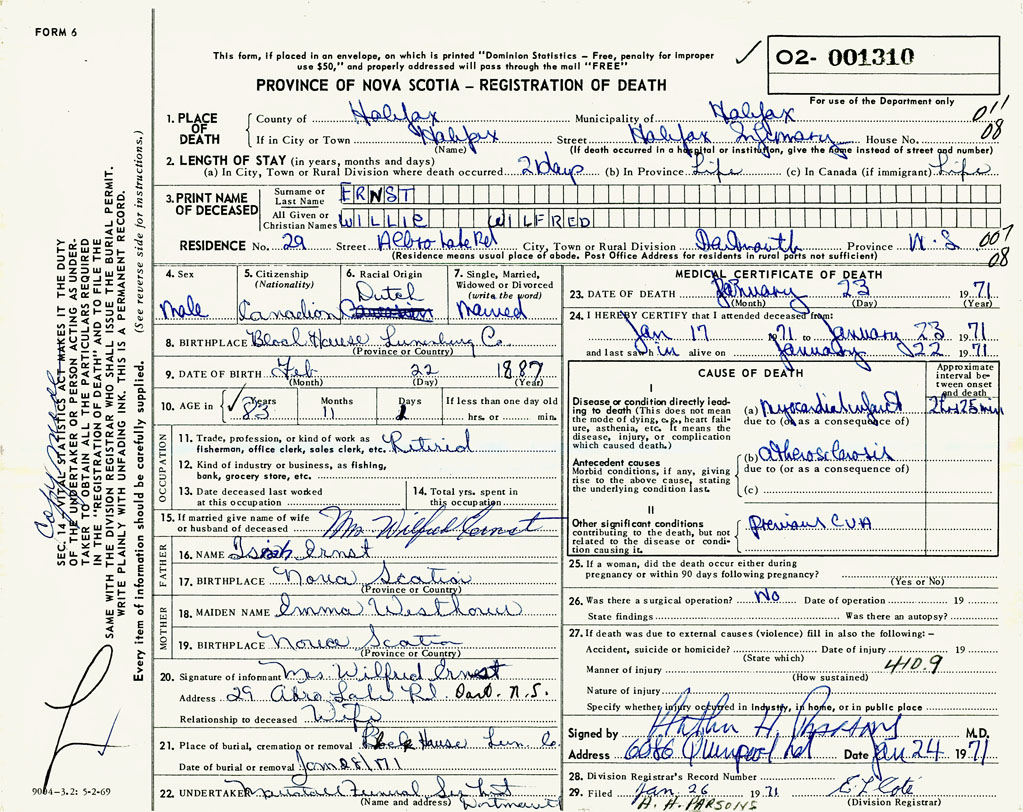 FORM 6
This form, if placed in an envelope, on which is printed "Dominion Statistics – Free, penalty for improper
use $50," and properly addressed will pass through the mail "FREE"
PROVINCE OF NOVA SCOTIA – REGISTRATION OF DEATH
02- 001310
For use of the Department only
011
08
1. PLACE OF DEATH
County of Halifax Municipality of Halifax
If in City or Town Halifax Street Halifax Infirmary House No.
(Name) (If death occurred in a hospital or institution, give the name instead of street and number)
2. LENGTH OF STAY (in years, months and days)
(a) In City, Town or Rural Division where death occurred 2 days (b) In Province Life (c) In Canada (if immigrant) Life
3. PRINT NAME OF DECEASED
Surname or Last Name ERNST
All Given or Christian Names WILLIE WILFRED
RESIDENCE No. 29 Street Albro Lake Rd City, Town or Rural Division Dartmouth Province N.S. 007
(Residence means usual place of abode. Post Office Address for residents in rural parts not sufficient) 08
4. Sex Male
5. Citizenship (Nationality) Canadian
6. Racial Origin Dutch
7. Single, Married, Widowed or Divorced (write the word) Married
8. BIRTHPLACE Block House Lunenburg Co.
(Province or Country)
9. DATE OF BIRTH Feb 22 1887
(Month) (Day) (Year)
10. AGE in Years 83 Months 11 Days 1 If less than one day old hrs. or min.
OCCUPATION
11. Trade, profession, or kind of work as fisherman, office clerk, sales clerk, etc. Retired
12. Kind of industry or business, as fishing, bank, grocery store, etc.
13. Date deceased last worked at this occupation
14. Total yrs. spent in this occupation
15. If married give name of wife or husband of deceased Mrs Wilfred Ernst
FATHER
16. NAME Ernst
17. BIRTHPLACE Nova Scotia
(Province or Country)
MOTHER
18. MAIDEN NAME Emma Westhaver
19. BIRTHPLACE Nova Scotia
(Province or Country)
20. Signature of informant Mrs. Wilfred Ernst
Address 29 Lake Rd. Dart. N.S.
Relationship to deceased Wife
21. Place of burial, cremation or removal Block House Lun. Co.
Date of burial or removal
22. UNDERTAKER Funeral Dartmouth
(Name and address)
MEDICAL CERTIFICATE OF DEATH
23. DATE OF DEATH January 23 1971
(Month) (Day) (Year)
24. I HEREBY CERTIFY that I attended deceased from:
Jan 17 1971 to January 23 1971
and last saw him alive on January 22 1971
CAUSE OF DEATH
Approximate interval between onset and death
I
Disease or condition directly leading to death (This does not mean the mode of dying, e.g., heart failure, asthenia, etc. It means the disease, injury, or complication which caused death.)
(a) Myocardial infarct 2 hrs 25 min
due to (or as a consequence of)
Antecedent causes
Morbid conditions, if any, giving rise to the above cause, stating the underlying condition last.
(b) atherosclerosis
due to (or as a consequence of)
(c)
II
Other significant conditions contributing to the death, but not related to the disease or condition causing it.
previous CVA
25. If a woman, did the death occur either during pregnancy or within 90 days following pregnancy?
(Yes or No)
26. Was there a surgical operation? No Date of operation 19
State findings Was there an autopsy?
27. If death was due to external causes (violence) fill in also the following: –
Accident, suicide or homicide? Date of injury 19
(State which)
Manner of injury 410.9
(How sustained)
Nature of injury
Specify whether injury occurred in industry, in home, or in public place
Signed by Arthur H. Parsons M.D.
Address 6086 Quinpool Rd Date Jan 24 1971
28. Division Registrar's Record Number
29. Filed Jan 26 1971
(Division Registrar)
A. H. PARSONS
SEC. 14, VITAL STATISTICS ACT MAKES IT THE DUTY
OF THE UNDERTAKER OR PERSON ACTING AS UNDER-
TAKER TO OBTAIN ALL THE PARTICULARS REQUIRED
IN THE "REGISTRATION OF DEATH" AND TO FILE THE
SAME WITH THE DIVISION REGISTRAR WHO SHALL ISSUE THE BURIAL PERMIT.
WRITE PLAINLY WITH UNFADING INK. THIS IS A PERMANENT RECORD.
Every item of information should be carefully supplied. (See reverse side for instructions.)
Copy made
9004–3.2: 5-2-69